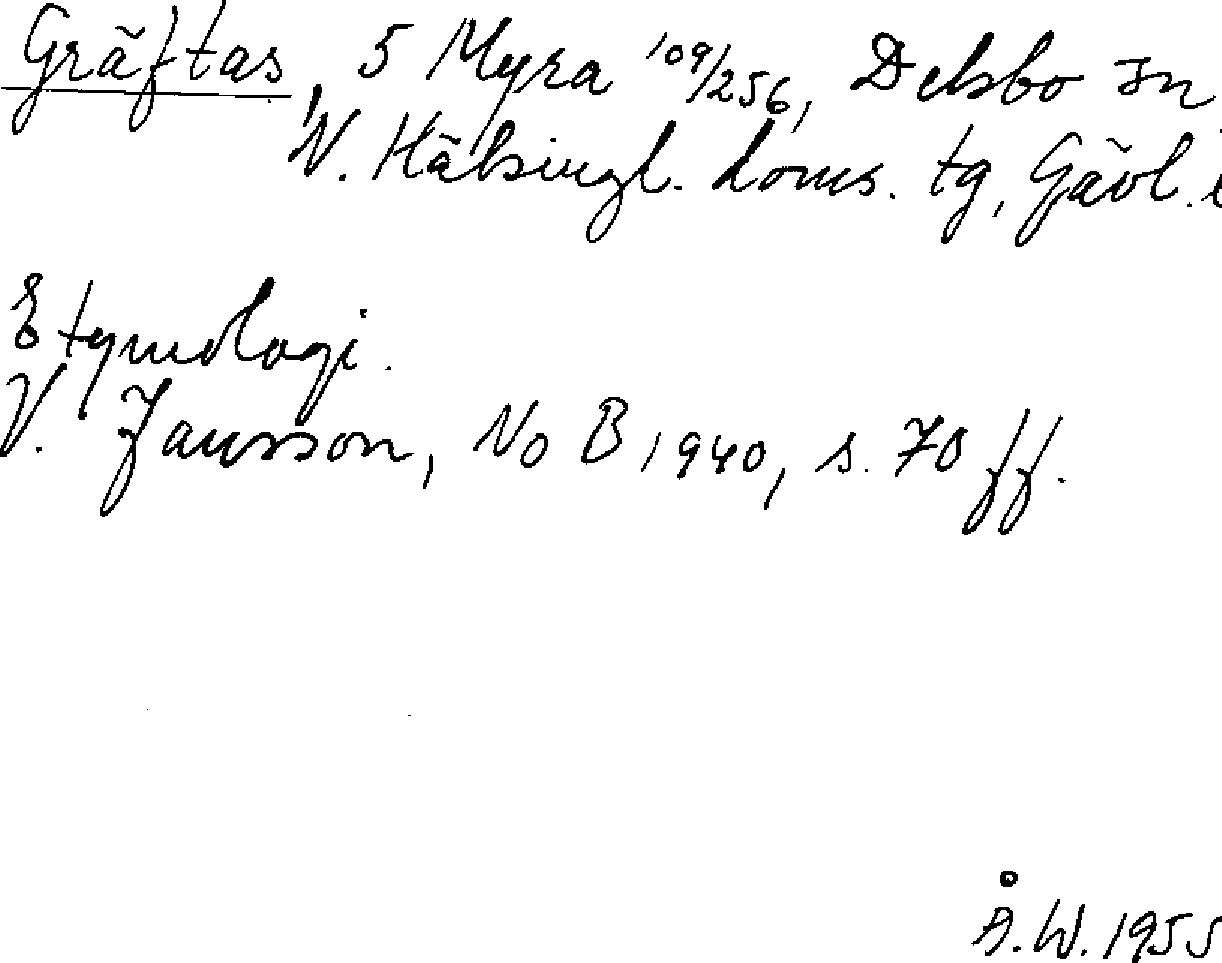 Gräftas, 5 Myra 109/256, Delsbo sn
N. Hälsingl. doms. tg, Gävl. l
Etymologi.
V. Jansson, NoB 1940, s. 70 ff.
Å.W. 1955